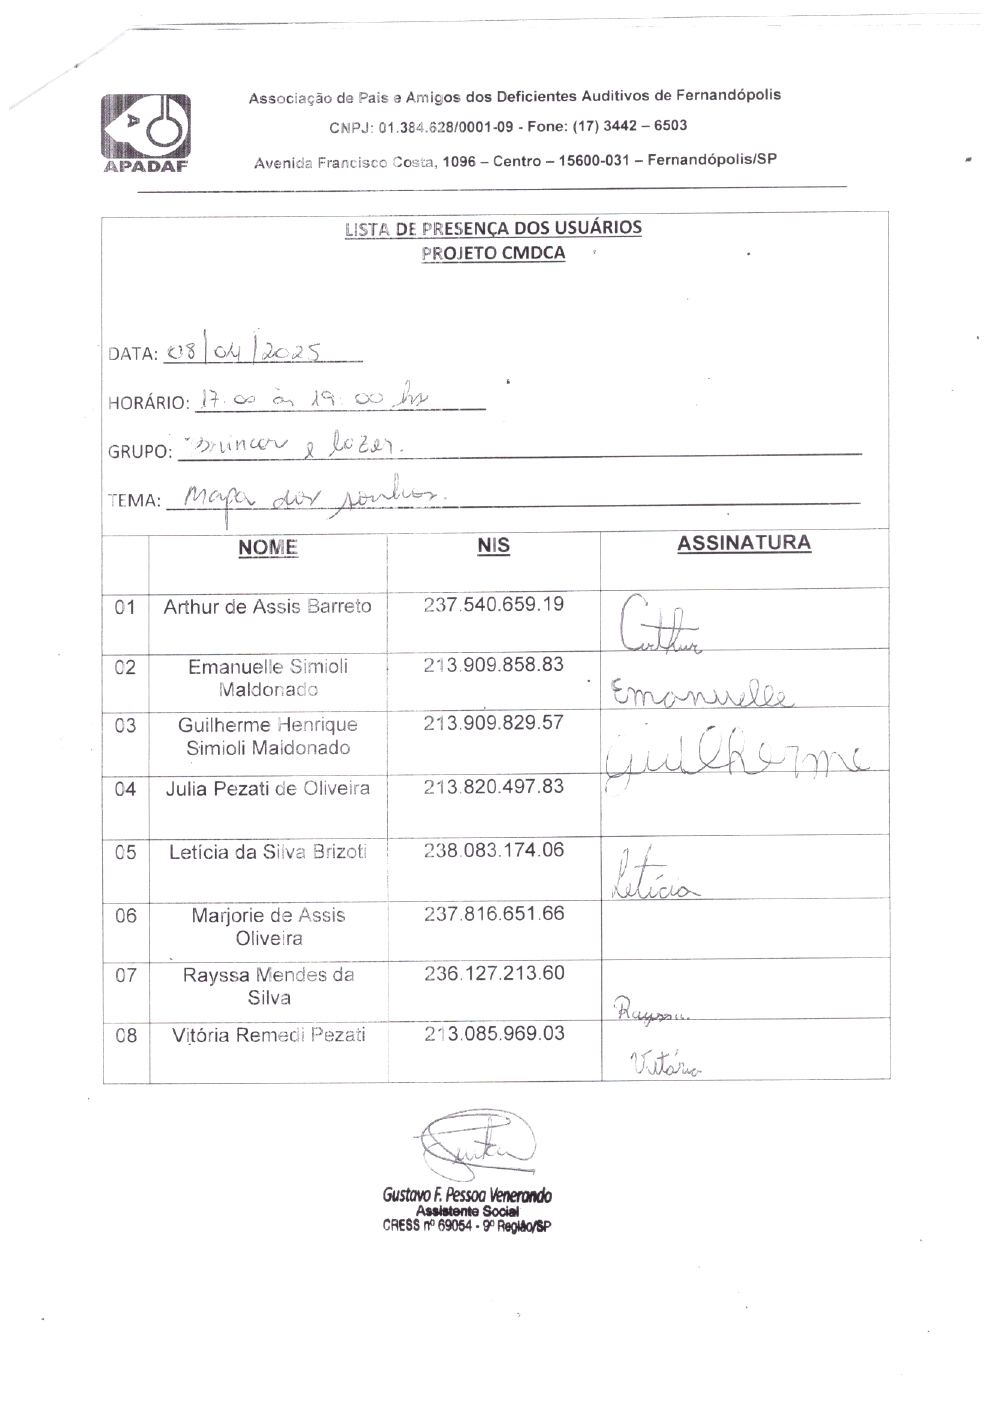 Associação de Pais e Amigos dos Deficientes Auditivos de Fernandópolis
CNPJ: 01.384.628/0001-09 - Fone: (17) 3442 – 6503
APADAF
Avenida Francisco Costa, 1096 – Centro – 15600-031 – Fernandópolis/SP
LISTA DE PRESENÇA DOS USUÁRIOS
PROJETO CMDCA
DATA: 08/04/2025
HORÁRIO: 17.00 às 19.00 hs
GRUPO: Brincar e lazer.
TEMA: Mapa dos sonhos.
NOME NIS ASSINATURA
01 Arthur de Assis Barreto 237.540.659.19 Arthur
02 Emanuelle Simioli 213.909.858.83
Maldonado Emanuelle
03 Guilherme Henrique 213.909.829.57
Simioli Maldonado Guilherme
04 Julia Pezati de Oliveira 213.820.497.83
05 Letícia da Silva Brizoti 238.083.174.06 Letícia
06 Marjorie de Assis 237.816.651.66
Oliveira
07 Rayssa Mendes da 236.127.213.60
Silva Rayssa
08 Vitória Remedi Pezati 213.085.969.03 Vitória
Gustavo F. Pessoa Venerando
Assistente Social
CRESS nº 69054 - 9º Região/SP